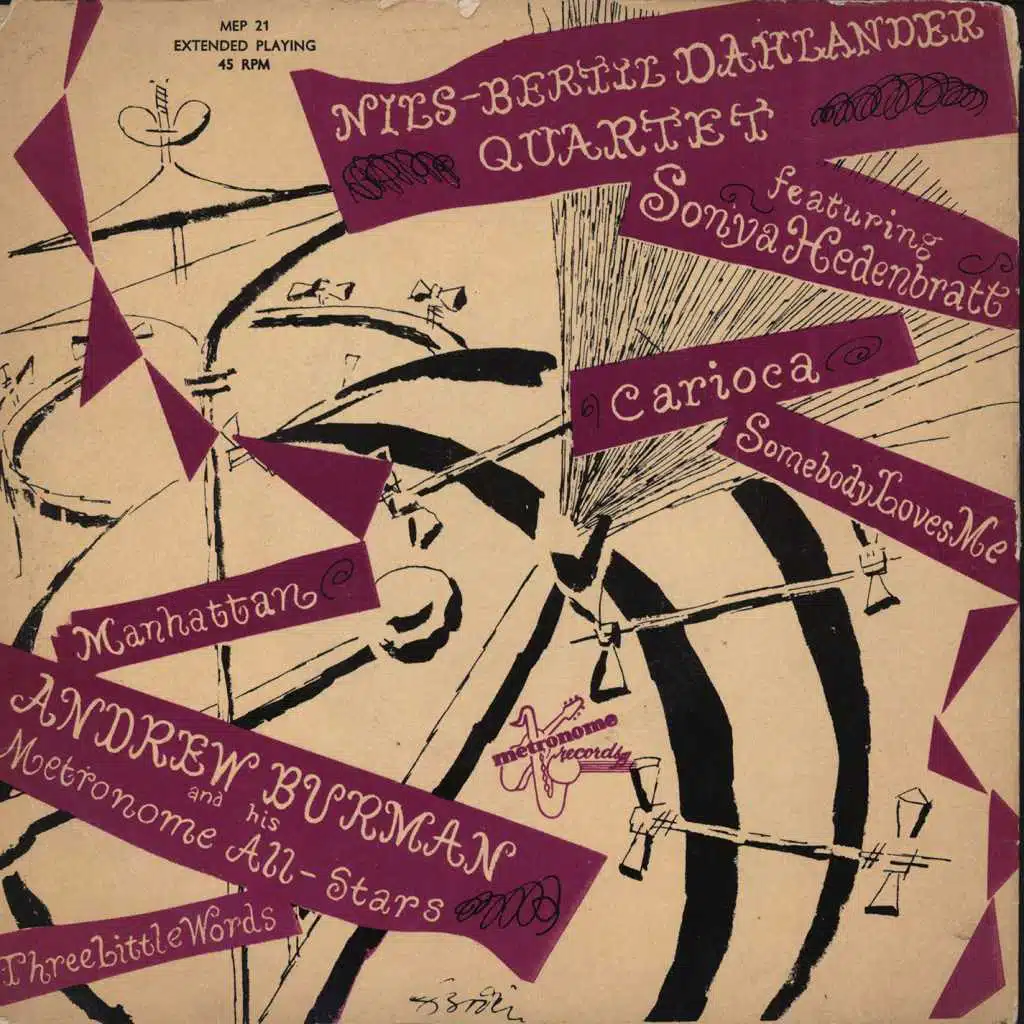 MEP 21
EXTENDED PLAYING
45 RPM
NILS-BERTIL DAHLANDER
QUARTET
featuring
Sonya Hedenbratt
Carioca
Somebody Loves Me
Manhattan
ANDREW BURMAN
and his
Metronome All-Stars
Three Little Words
metronome
recording